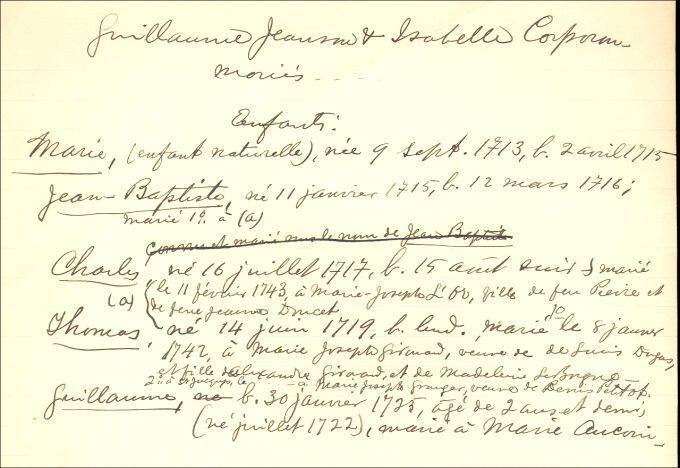 Guillaume Jeanson & Isabelle Corporon
mariés ....
Enfants:
Marie, (enfant naturelle), née 9 sept. 1713, b. 2 avril 1715
Jean-Baptiste, né 11 janvier 1715, b. 12 mars 1716;
marié 1º. à (a)
connu et marié sous le nom de Jean Baptiste
Charles, né 16 juillet 1717, b. 15 août suiv; marié
(a) le 11 février 1743, à Marie-Josephe, fille de feu Pierre et
de feue Jeanne Doucet
Thomas, né 14 juin 1719, b. lend., marié 1º le 8 janvier
1742, à Marie Josephe Girouard, veuve de Louis Dugas,
et fille d'Alexandre Girouard, et de Madeleine
2º à, le .... à Marie Josephe Granger, veuve de Denis Petitot.
Guillaume, né b. 30 janvier 1725, âgé de 2 ans et demi,
(né juillet 1722), marié à Marie Aucoin